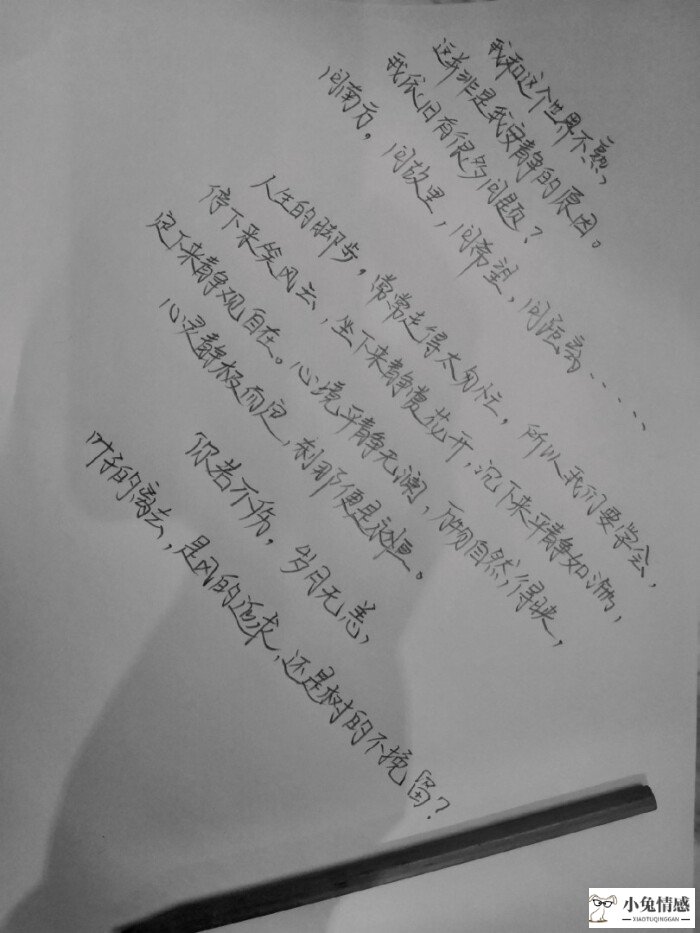 我和这个世界不熟，
这并非是我安静的原因。
我依旧有很多问题？
问南方，问故里，问希望，问距离……
人生的脚步，常常走得太匆忙，所以我们要学会，
停下来笑风云，坐下来静赏花开，沉下来平静如海，
定下来静观自在。心境平静无澜，万物自然得映，
心灵静极而定，刹那便是永恒。
你若不伤，岁月无恙，
叶子的离去，是风的追求，还是树的不挽留？
小兔情感
XIAOTUQINGGAN